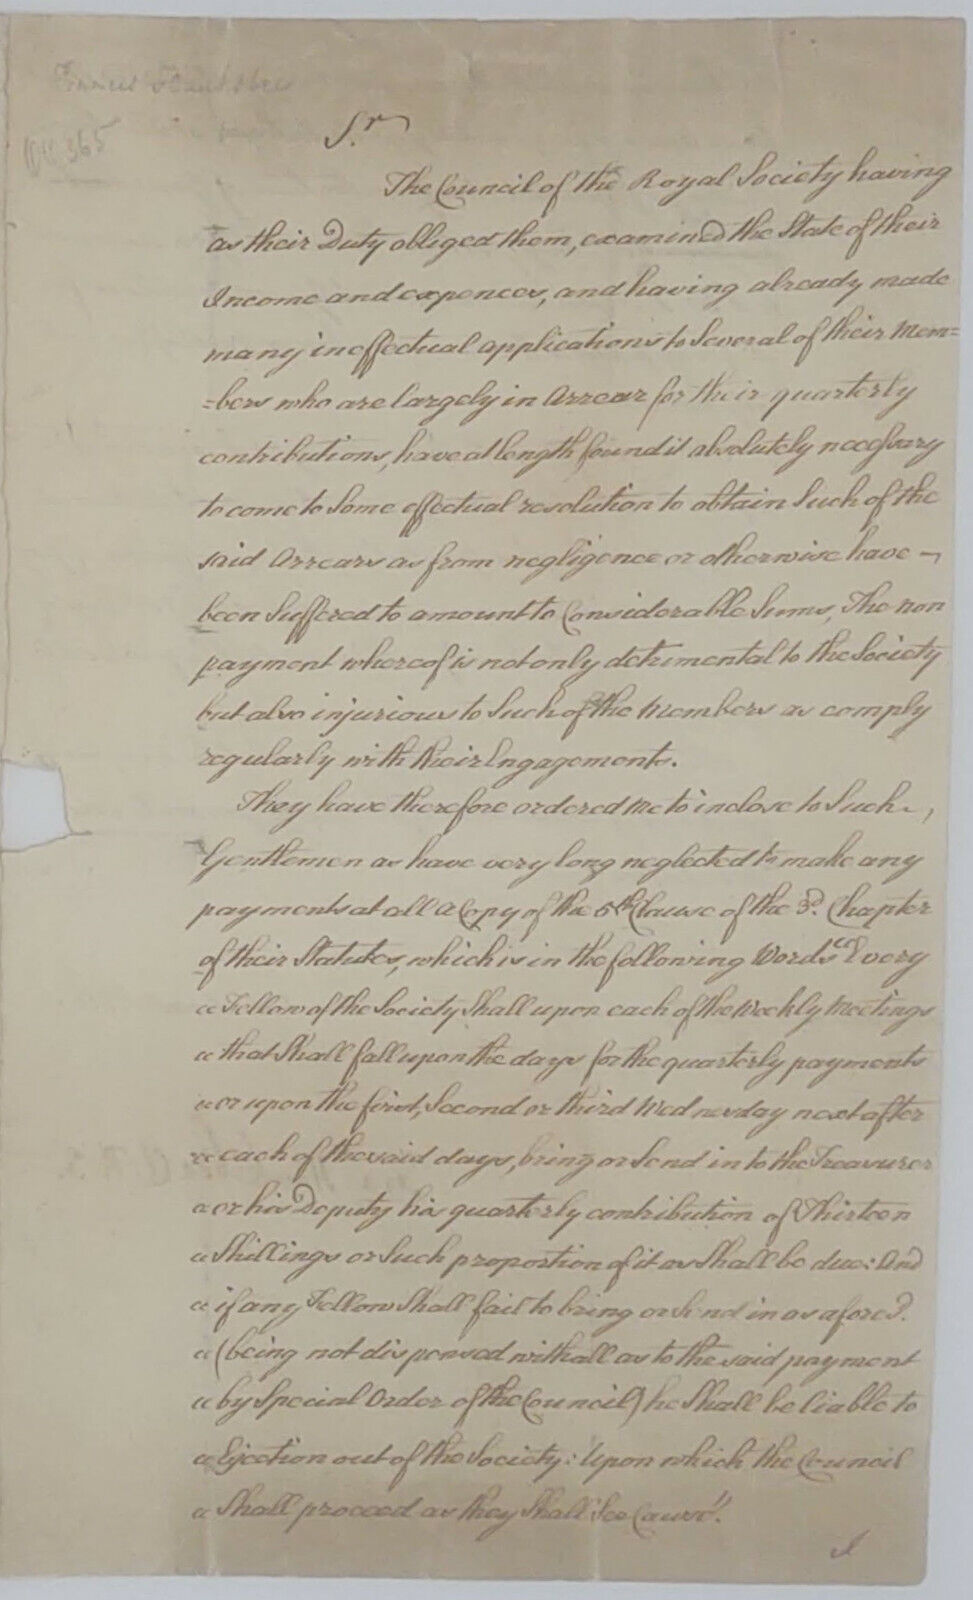 Francis
365
S.r
The Council of the Royal Society having
as their Duty obliged them, examined the State of their
Income and expences, and having already made
many ineffectual applications to Several of their Mem=
=bers who are largely in Arrear for their quarterly
contributions, have at length found it absolutely necessary
to come to Some effectual resolution to obtain Such of the
said Arrears as from negligence or otherwise have
been Suffered to amount to Considerable Sums, The non
payment whereof is not only detrimental to the Society
but also injurious to Such of the Members as comply
regularly with their Engagements.
They have therefore ordered me to inclose to Such
Gentlemen as have very long neglected to make any
payments at all a Copy of the 5th Clause of the 3.d Chapter
of their Statutes, which is in the following Words “Every
“ Fellow of the Society Shall upon each of the Weekly Meetings
“ that Shall fall upon the days for the quarterly payments
“ or upon the first, Second or third Wednesday next after
“ each of the said days, bring or Send in to the Treasurer
“ or his Deputy his quarterly contribution of Thirteen
“ Shillings or Such proportion of it as Shall be due: And
“ if any Fellow Shall fail to bring or Send in as afores.d
“ (being not dispensed withall as to the said payment
“ by Special Order of the Council) he Shall be liable to
“ Ejection out of the Society: Upon which the Council
“ Shall proceed as they Shall See Cause”.
I